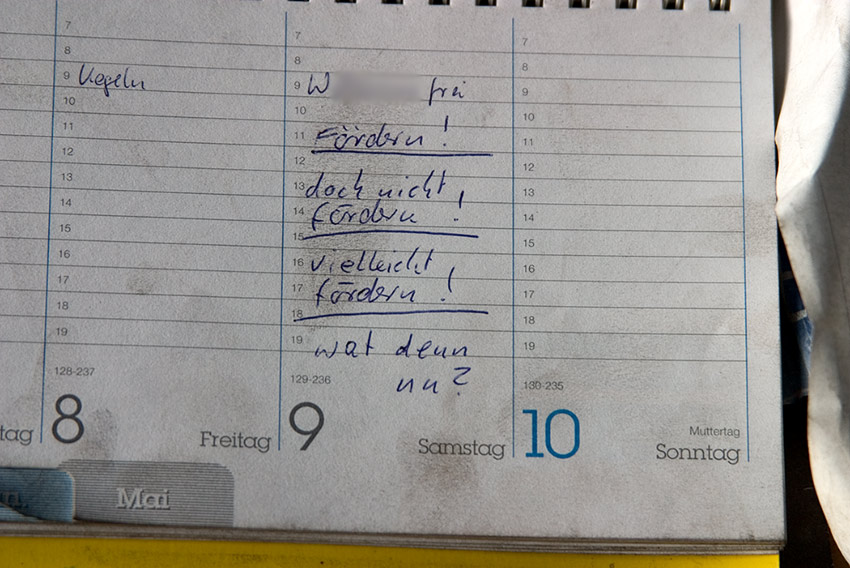 7
8
9 Kegeln
10
11
12
13
14
15
16
17
18
19
128-237
8
Freitag
7
8
9 W frei
10
11 Fördern!
12
13 doch nicht
14 fördern!
15
16 vielleicht
17 fördern!
18
19 wat denn
nu?
129-236
9
Samstag
7
8
9
10
11
12
13
14
15
16
17
18
19
130-235
10
Muttertag
Sonntag
tag
n.
Mai